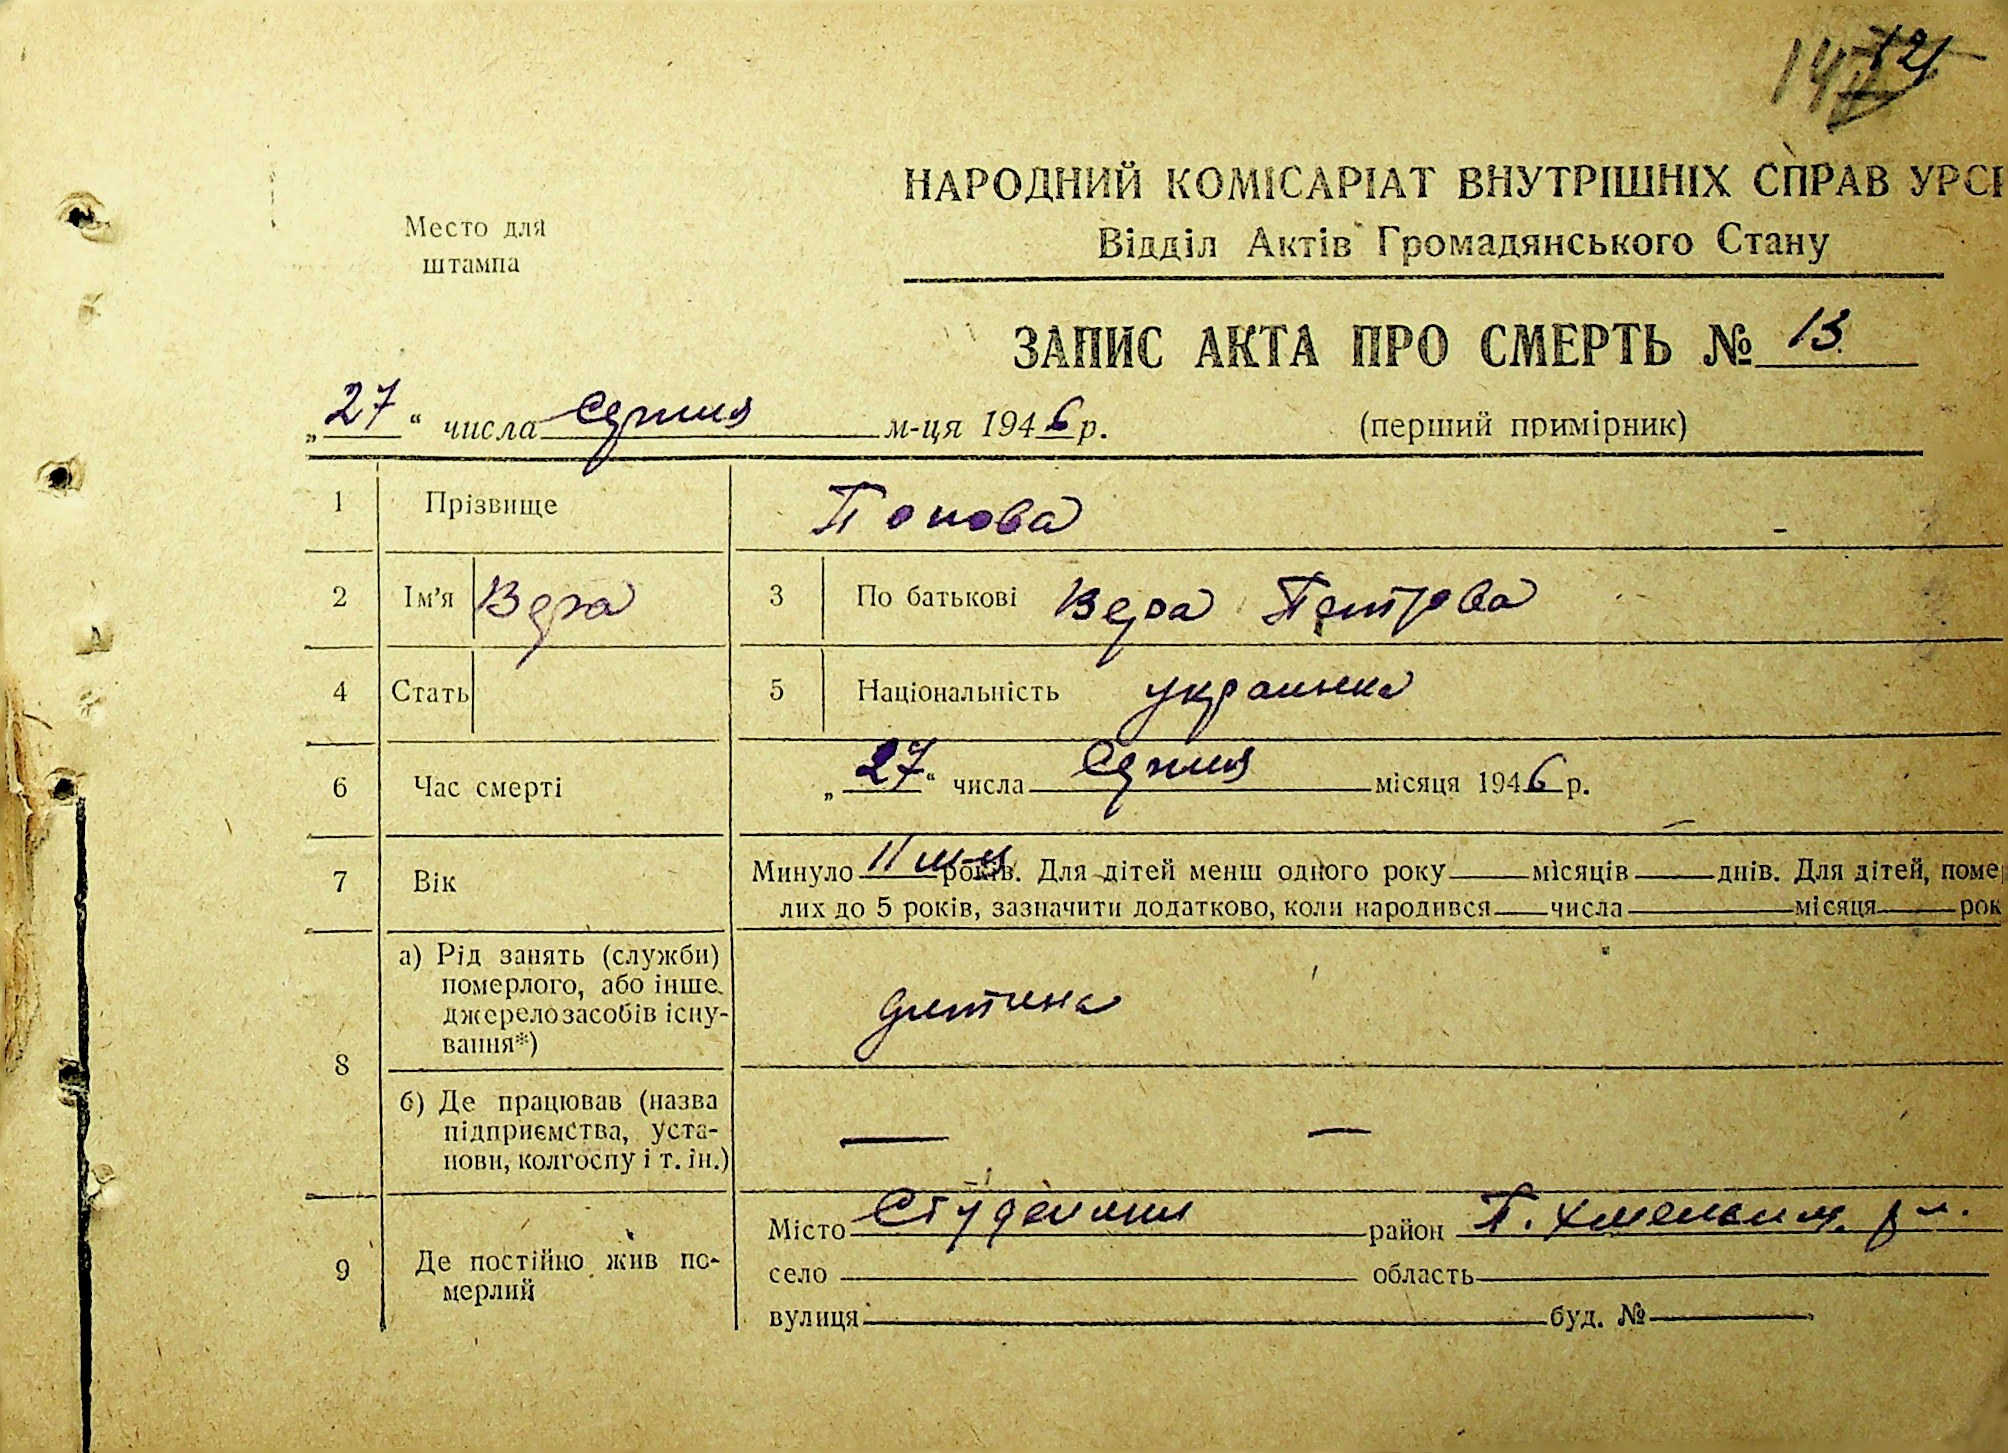 НАРОДНИЙ КОМІСАРІАТ ВНУТРІШНІХ СПРАВ УРСР
Место для
штампа
Відділ Актів Громадянського Стану
ЗАПИС АКТА ПРО СМЕРТЬ № 13
„27“ числа серпня м-ця 1946 р.
(перший примірник)
1 Прізвище Попова
2 Ім'я Вера 3 По батькові Вера Петрова
4 Стать 5 Національність украинка
6 Час смерті „27“ числа серпня місяця 1946 р.
7 Вік Минуло 11 років. Для дітей менш одного року місяців днів. Для дітей, поме
лих до 5 років, зазначити додатково, коли народився числа місяця рок
8 а) Рід занять (служби)
померлого, або інше
джерело засобів існу-
вання*)
дитина
б) Де працював (назва
підприємства, уста-
нови, колгоспу і т. ін.)
— —
9 Де постійно жив по-
мерлий
Місто район П. Хмельниц. р-н.
село область
вулиця буд. №